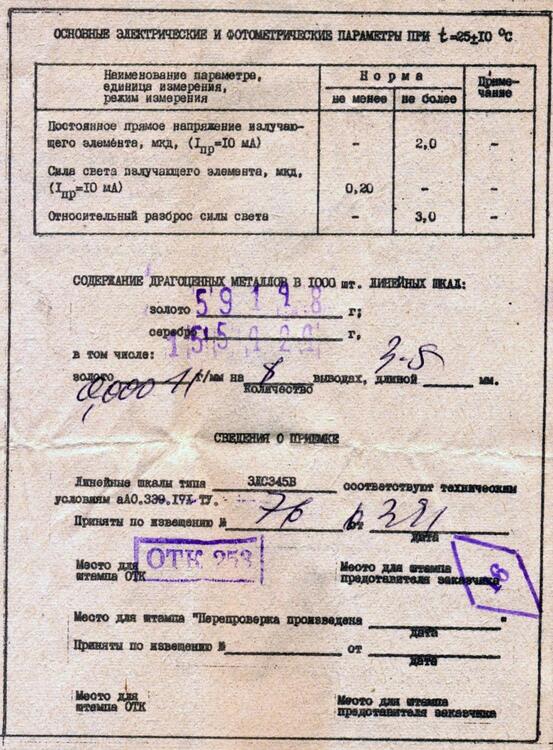 ОСНОВНЫЕ ЭЛЕКТРИЧЕСКИЕ И ФОТОМЕТРИЧЕСКИЕ ПАРАМЕТРЫ ПРИ t=25±10 °С
Наименование параметра, единица измерения, режим измерения
Норма
Приме-
чание
не менее
не более
Постоянное прямое напряжение излучаю-
щего элемента, мкд, (Iпр=10 мА)
-
2,0
-
Сила света излучающего элемента, мкд,
(Iпр=10 мА)
0,20
-
-
Относительный разброс силы света
-
3,0
-
СОДЕРЖАНИЕ ДРАГОЦЕННЫХ МЕТАЛЛОВ В 1000 шт. ЛИНЕЙНЫХ ШКАЛ:
золото г;
серебро г,
в том числе:
золото г/мм на 8 выводах, длиной мм.
количество
СВЕДЕНИЯ О ПРИЕМКЕ
Линейные шкалы типа ЗЛС345В соответствуют техническим
условиям аА0.339.191 ТУ.
Приняты по извещению № 76 от
дата
ОТК 253
Место для
штампа ОТК
Место для штампа
представителя заказчика
18
Место для штампа "Перепроверка произведена "
дата
Приняты по извещению № от
дата
Место для
штампа ОТК
Место для штампа
представителя заказчика